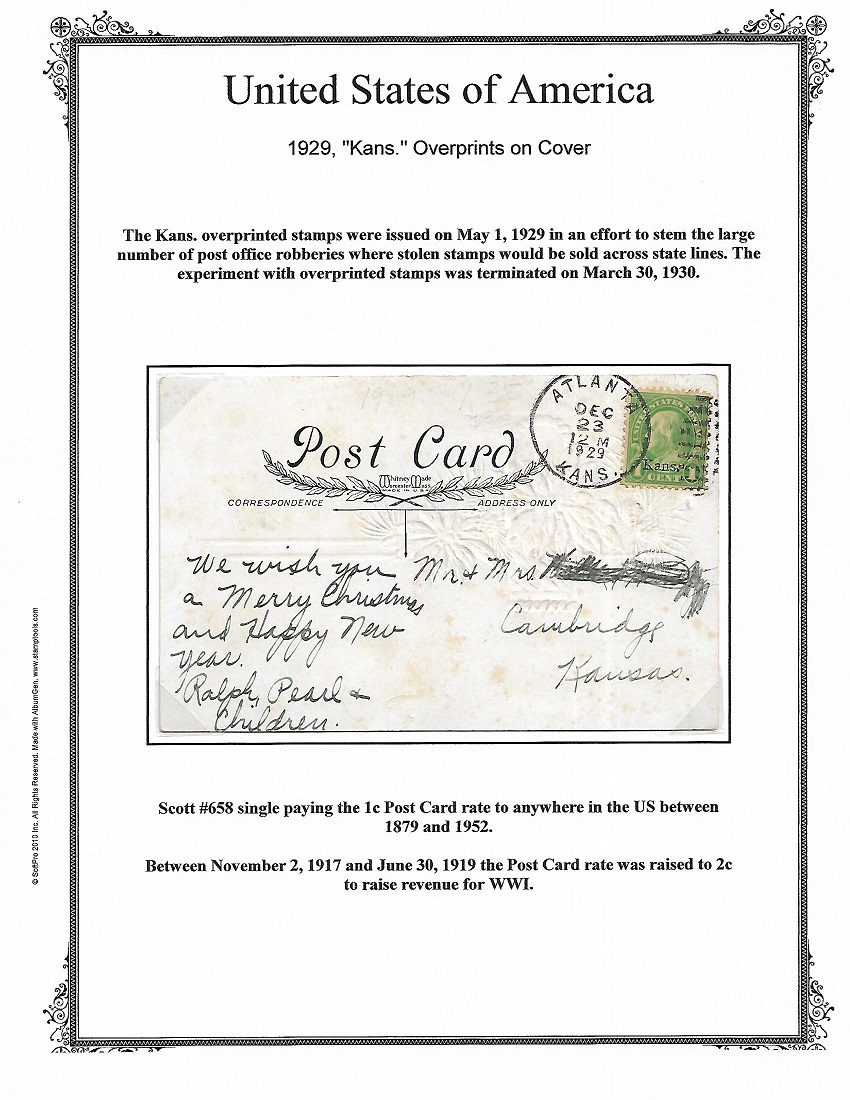 United States of America
1929, "Kans." Overprints on Cover
The Kans. overprinted stamps were issued on May 1, 1929 in an effort to stem the large
number of post office robberies where stolen stamps would be sold across state lines. The
experiment with overprinted stamps was terminated on March 30, 1930.
ATLANTA
DEC
23
12 M
1929
KANS.
UNITED STATES
Kans.
CENT
Post Card
Whitney Made
Worcester, Mass.
MADE IN U.S.A.
CORRESPONDENCE
ADDRESS ONLY
We wish you
a Merry Christmas
and Happy New
year.
Ralph, Pearl &
Children.
Mr. & Mrs
Cambridge
Kansas.
Scott #658 single paying the 1c Post Card rate to anywhere in the US between
1879 and 1952.
Between November 2, 1917 and June 30, 1919 the Post Card rate was raised to 2c
to raise revenue for WWI.
© SoftPro 2010 Inc. All Rights Reserved. Made with AlbumGen. www.stamptools.com